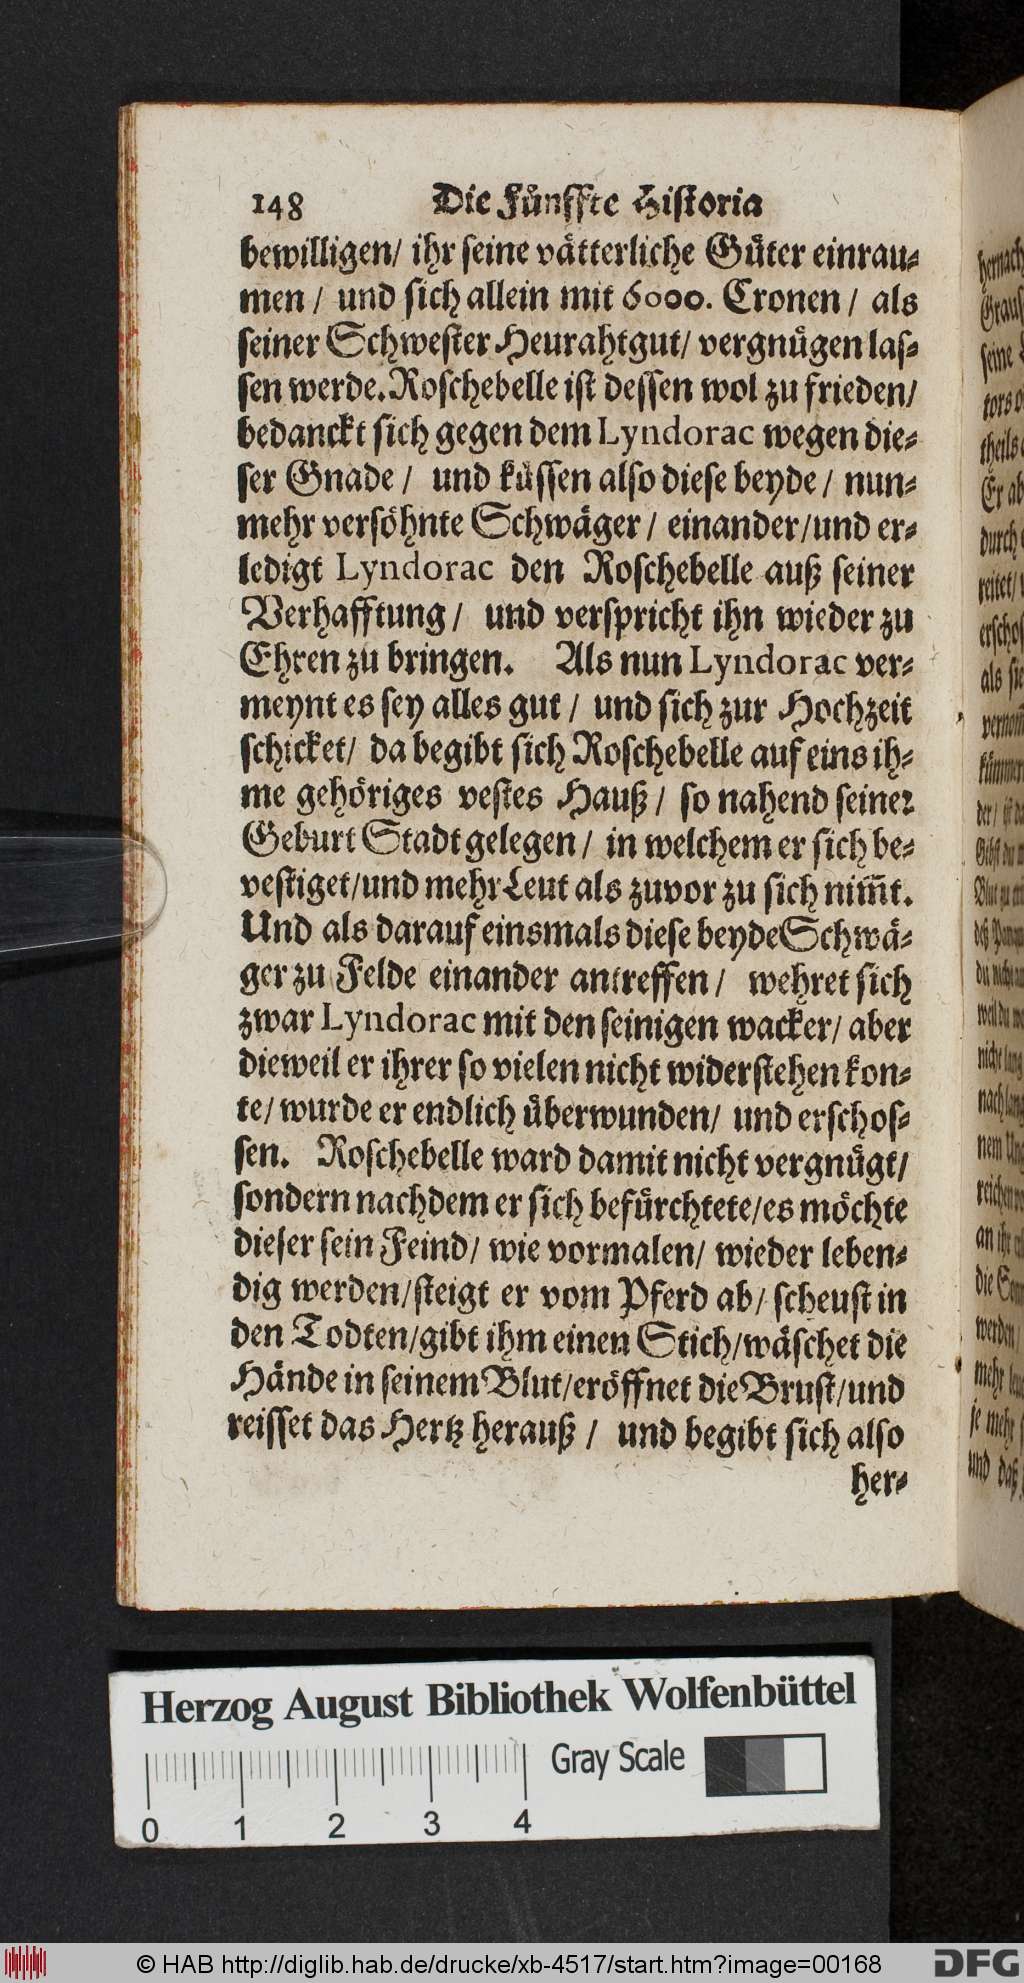 148 Die Fünffte Historia
bewilligen/ ihr seine vätterliche Güter einrau⸗
men / und sich allein mit 6000. Cronen / als
seiner Schwester Heurahtgut/ vergnügen las⸗
sen werde. Roschebelle ist dessen wol zu frieden/
bedanckt sich gegen dem Lyndorac wegen die⸗
ser Gnade / und küssen also diese beyde / nun⸗
mehr versöhnte Schwäger / einander/und er⸗
ledigt Lyndorac den Roschebelle auß seiner
Verhafftung / und verspricht ihn wieder zu
Ehren zu bringen. Als nun Lyndorac ver⸗
meynt es sey alles gut / und sich zur Hochzeit
schicket/ da begibt sich Roschebelle auf eins ih⸗
me gehöriges vestes Hauß / so nahend seiner
Geburt Stadt gelegen / in welchem er sich be⸗
vestiget/und mehr Leut als zuvor zu sich nim̃t.
Und als darauf einsmals diese beyde Schwä⸗
ger zu Felde einander antreffen / wehret sich
zwar Lyndorac mit den seinigen wacker/ aber
dieweil er ihrer so vielen nicht widerstehen kon⸗
te/ wurde er endlich überwunden/ und erschos⸗
sen. Roschebelle ward damit nicht vergnügt/
sondern nachdem er sich befürchtete/es möchte
dieser sein Feind/ wie vormalen/ wieder leben⸗
dig werden/steigt er vom Pferd ab/ scheust in
den Todten/gibt ihm einen Stich/wäschet die
Hände in seinem Blut/eröffnet die Brust/und
reisset das Hertz herauß / und begibt sich also
her⸗
Herzog August Bibliothek Wolfenbüttel
Gray Scale
0 1 2 3 4
© HAB http://diglib.hab.de/drucke/xb-4517/start.htm?image=00168
DFG